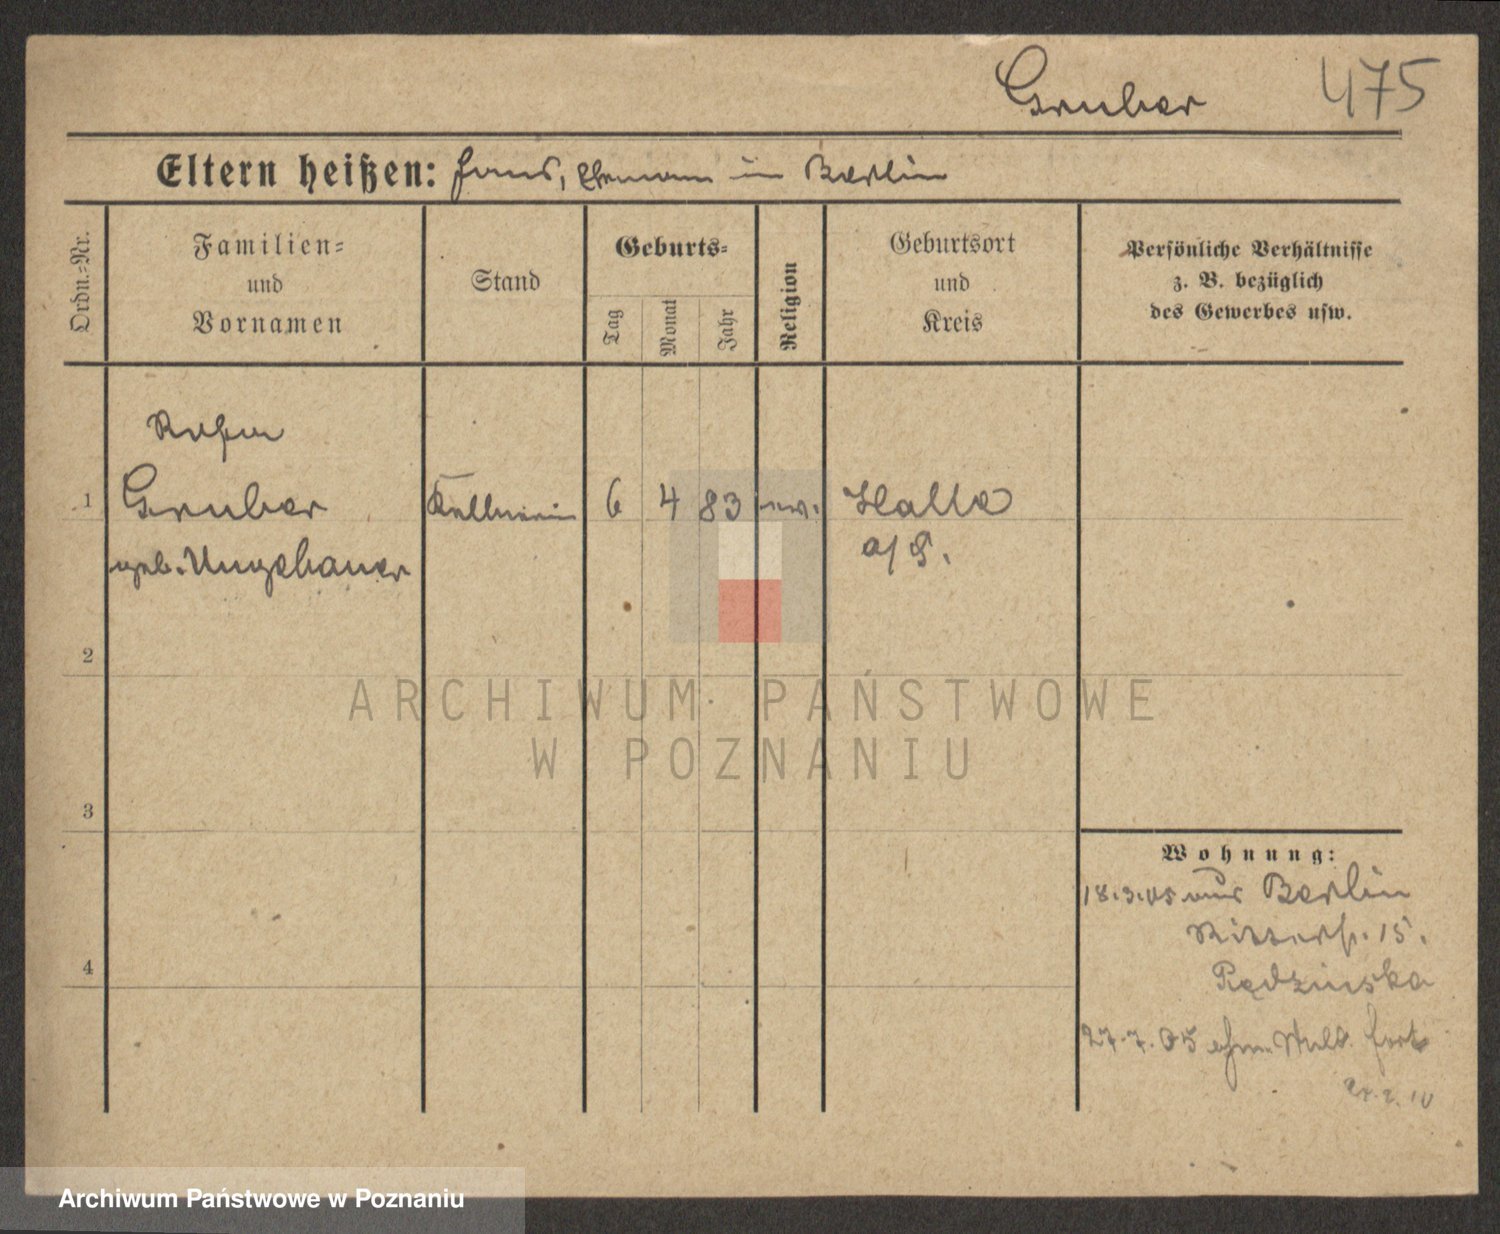 Gruber 475
Eltern heißen: Ehemann in Berlin
Ordn.=Nr.
Familien=
und
Vornamen
Stand
Geburts=
Tag
Monat
Jahr
Religion
Geburtsort
und
Kreis
Persönliche Verhältnisse
z. B. bezüglich
des Gewerbes usw.
1
Gruber Kellnerin 6 4 83 ev. Halle
geb. Ungebauer a/S.
2
3
4
Wohnung:
18.3.05 aus Berlin
Ritterstr. 15.
Rędzinska
27.7.05 ohne Meld. fort
ARCHIWUM PAŃSTWOWE
W POZNANIU
Archiwum Państwowe w Poznaniu